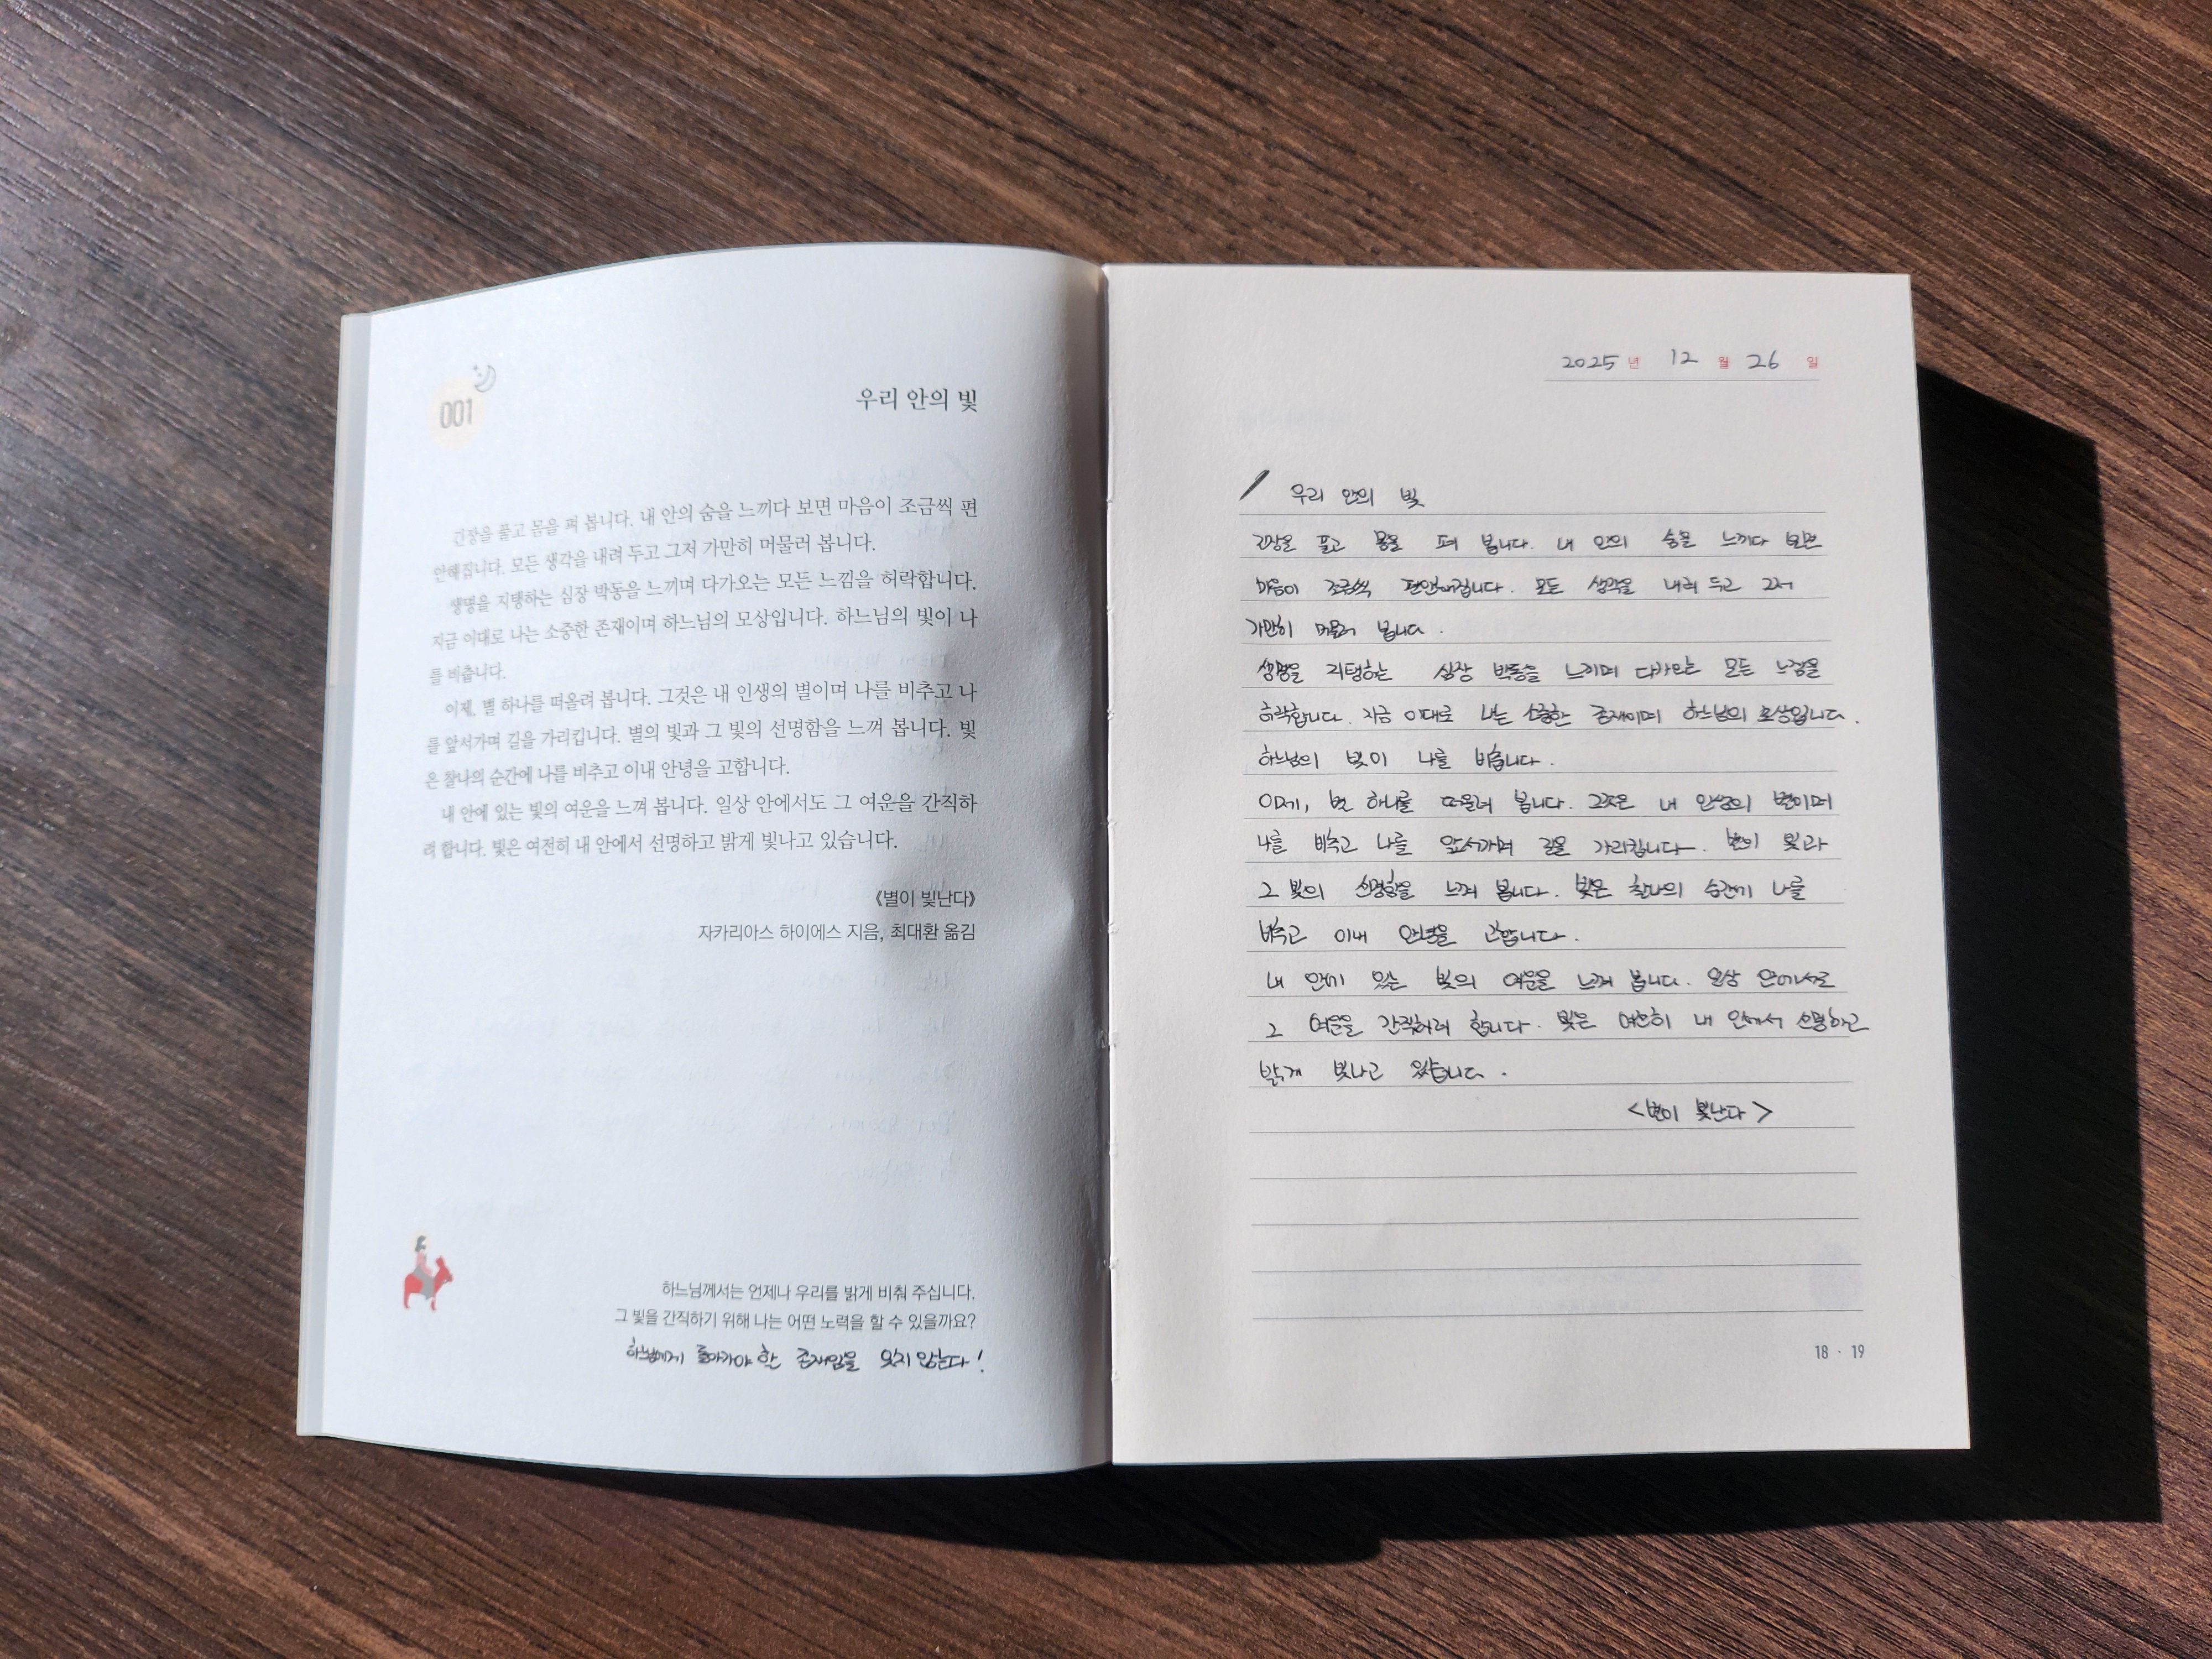 001
우리 안의 빛
긴장을 풀고 몸을 펴 봅니다. 내 안의 숨을 느끼다 보면 마음이 조금씩 편
안해집니다. 모든 생각을 내려 두고 그저 가만히 머물러 봅니다.
생명을 지탱하는 심장 박동을 느끼며 다가오는 모든 느낌을 허락합니다.
지금 이대로 나는 소중한 존재이며 하느님의 모상입니다. 하느님의 빛이 나
를 비춥니다.
이제, 별 하나를 떠올려 봅니다. 그것은 내 인생의 별이며 나를 비추고 나
를 앞서가며 길을 가리킵니다. 별의 빛과 그 빛의 선명함을 느껴 봅니다. 빛
은 찰나의 순간에 나를 비추고 이내 안녕을 고합니다.
내 안에 있는 빛의 여운을 느껴 봅니다. 일상 안에서도 그 여운을 간직하
려 합니다. 빛은 여전히 내 안에서 선명하고 밝게 빛나고 있습니다.
《별이 빛난다》
자카리아스 하이에스 지음, 최대환 옮김
하느님께서는 언제나 우리를 밝게 비춰 주십니다.
그 빛을 간직하기 위해 나는 어떤 노력을 할 수 있을까요?
하느님에게 돌아가야 할 존재임을 잊지 않는다!
2025년 12월 26일
우리 안의 빛
긴장을 풀고 몸을 펴 봅니다. 내 안의 숨을 느끼다 보면
마음이 조금씩 편안해집니다. 모든 생각을 내려 두고 그저
가만히 머물러 봅니다.
생명을 지탱하는 심장 박동을 느끼며 다가오는 모든 느낌을
허락합니다. 지금 이대로 나는 소중한 존재이며 하느님의 모상입니다.
하느님의 빛이 나를 비춥니다.
이제, 별 하나를 떠올려 봅니다. 그것은 내 인생의 별이며
나를 비추고 나를 앞서가며 길을 가리킵니다. 별의 빛과
그 빛의 선명함을 느껴 봅니다. 빛은 찰나의 순간에 나를
비추고 이내 안녕을 고합니다.
내 안에 있는 빛의 여운을 느껴 봅니다. 일상 안에서도
그 여운을 간직하려 합니다. 빛은 여전히 내 안에서 선명하고
밝게 빛나고 있습니다.
<별이 빛난다>
18 · 19